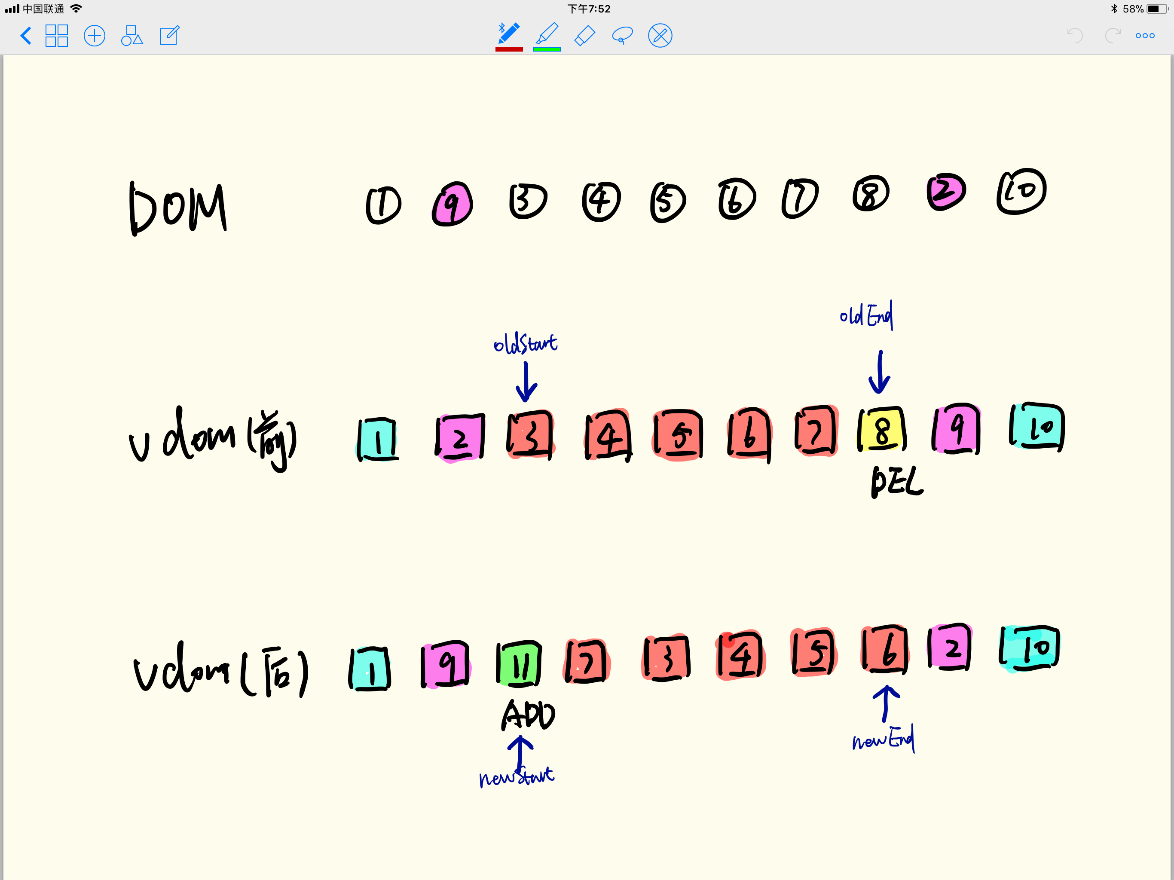 中国联通 下午7:52 58%
DOM 1 9 3 4 5 6 7 8 2 10
oldStart oldEnd
vdom(前) 1 2 3 4 5 6 7 8 9 10
DEL
vdom(后) 1 9 11 7 3 4 5 6 2 10
ADD
newStart newEnd